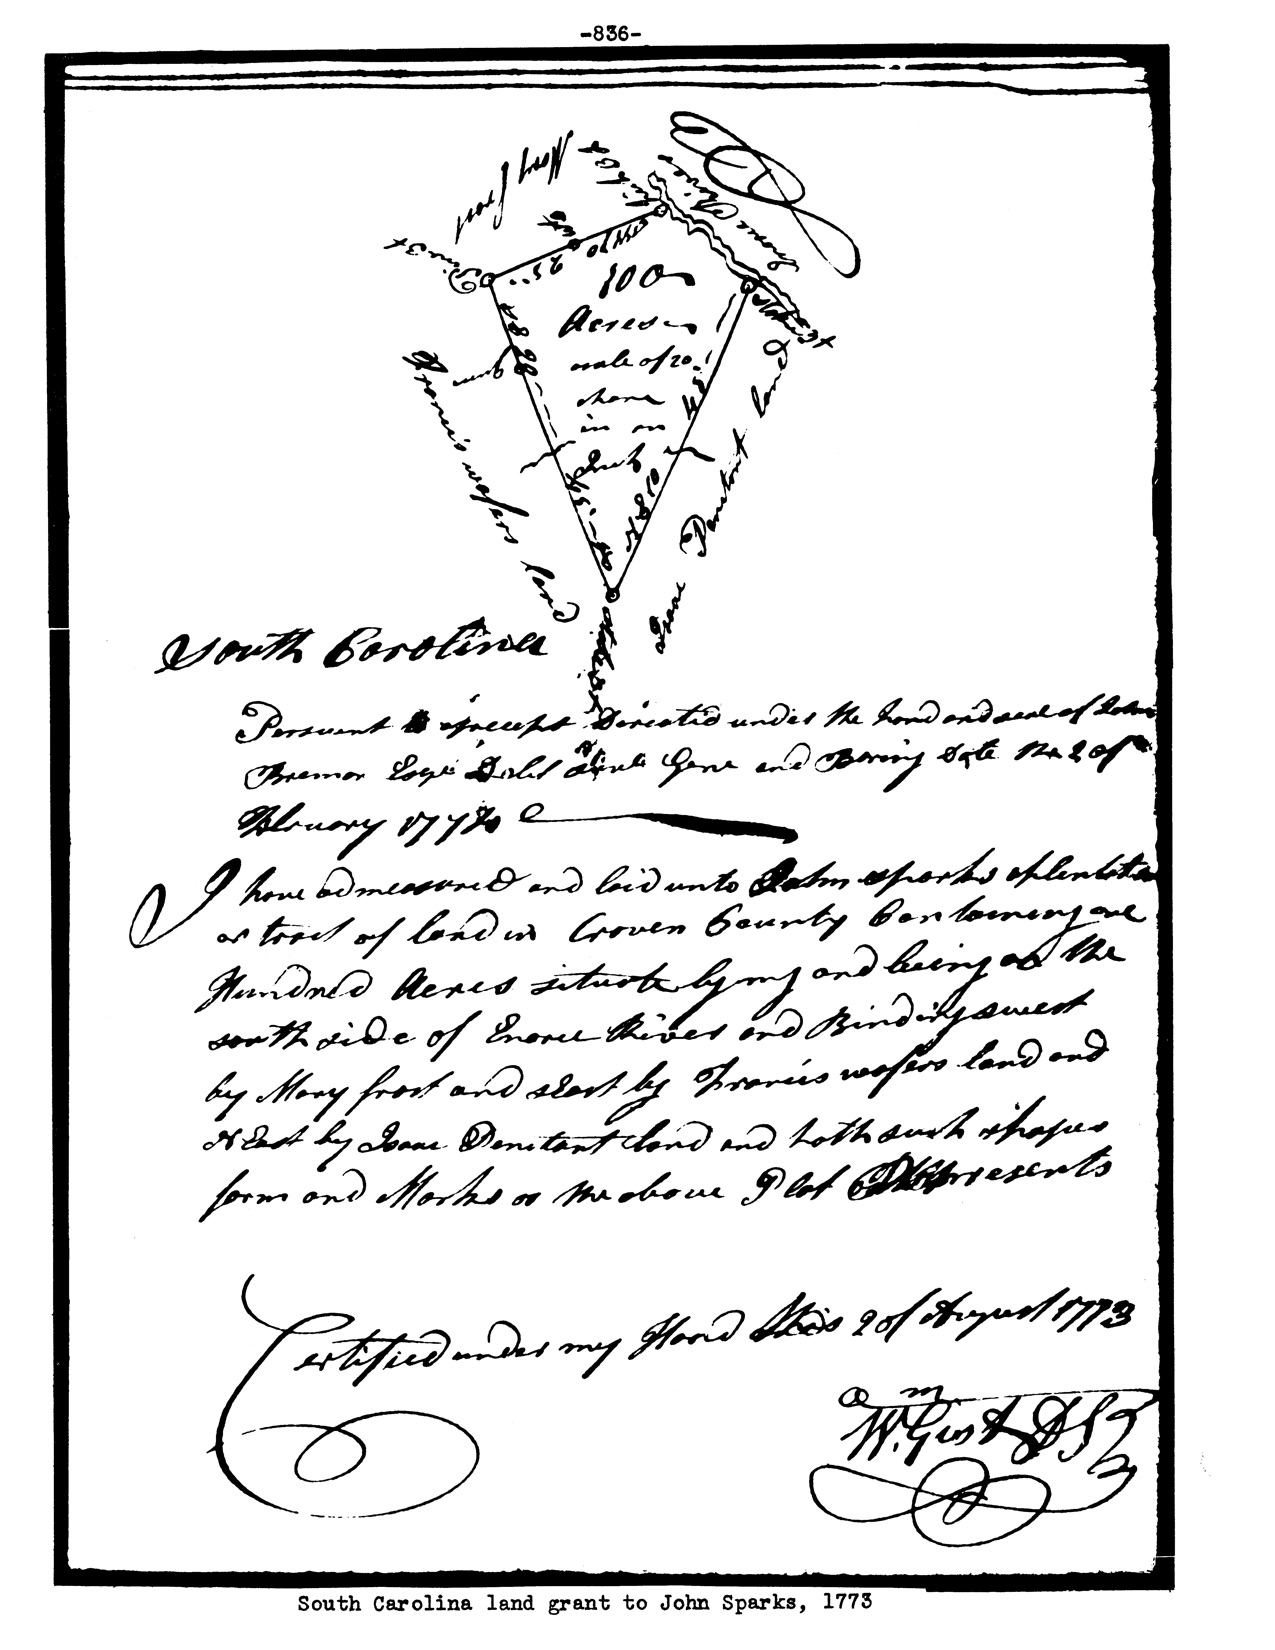 -836-
Mary Frost
Pine 3x
Enoree River
100
Acres
scale of 20
chans
in an
Inch
Francis wafers land
Isaac Penitant land
South Carolina
Persuant to a precept Directed under the hand and seal of John
Bremar Esqr Gene and Baring Date the 2 of
Februory
I have admeasured and laid unto John sparks a plentation
or tract of land in Croven County Containing one
Hundred Acres situate lying and being on the
south side of Enoree River and Binding swest
by Mary frost and sEast by Francis wafers land and
N East by Isaac Penitant land and hath such shapes
form and Marks as the above Plat Represents
Certified under my Hand this 2 of August 1773
Wm. Gist D S
South Carolina land grant to John Sparks, 1773